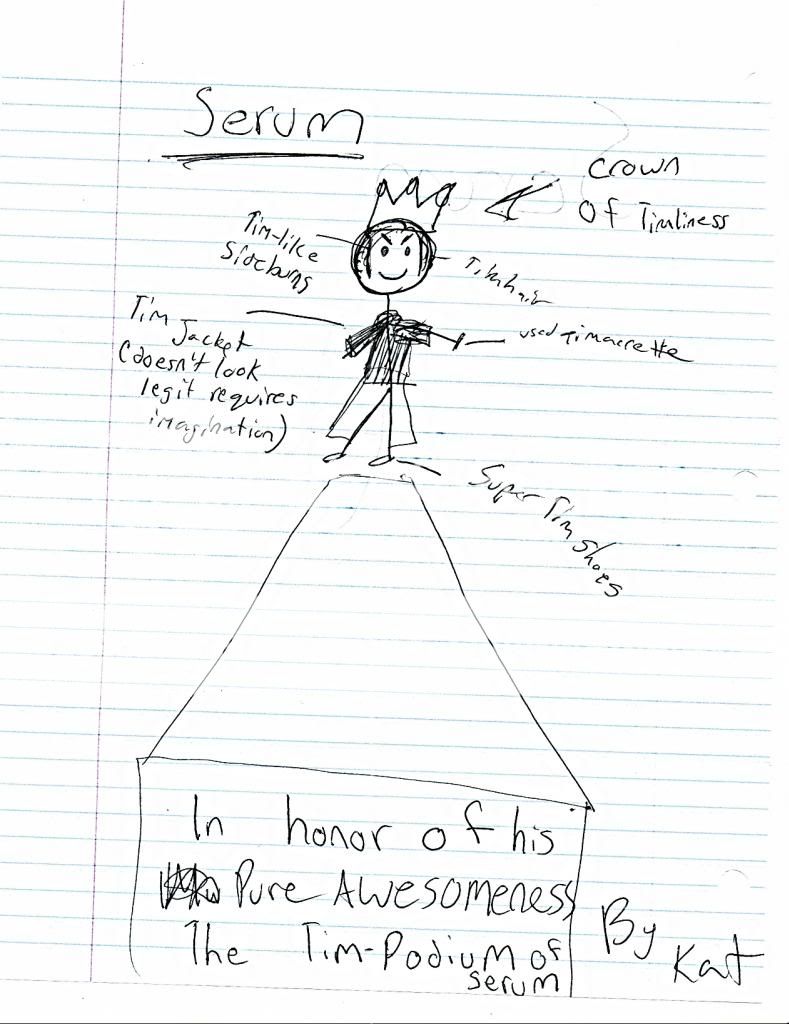 Serum
crown
of Timliness
Tim-like
Sideburns
Tim hair
Tim
Jacket
(doesn't look
legit requires
imagination)
used timarette
Super Tim shoes
In honor of his
Pure Awesomeness
The Tim-Podium of
serum
By
Kat